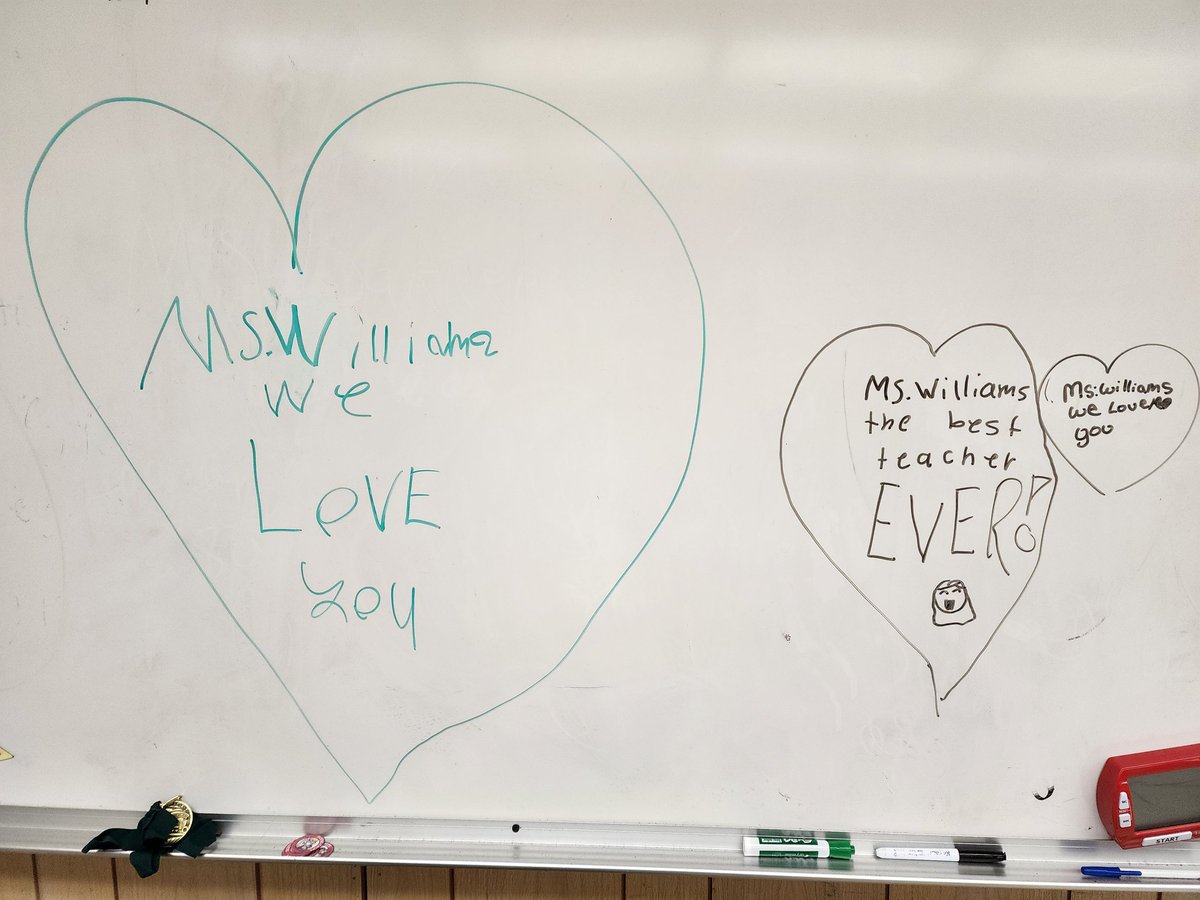 Ms. Williams
we
LOVE
you
Ms. Williams
the best
teacher
EVER!
Ms. Williams
we Love
you
START